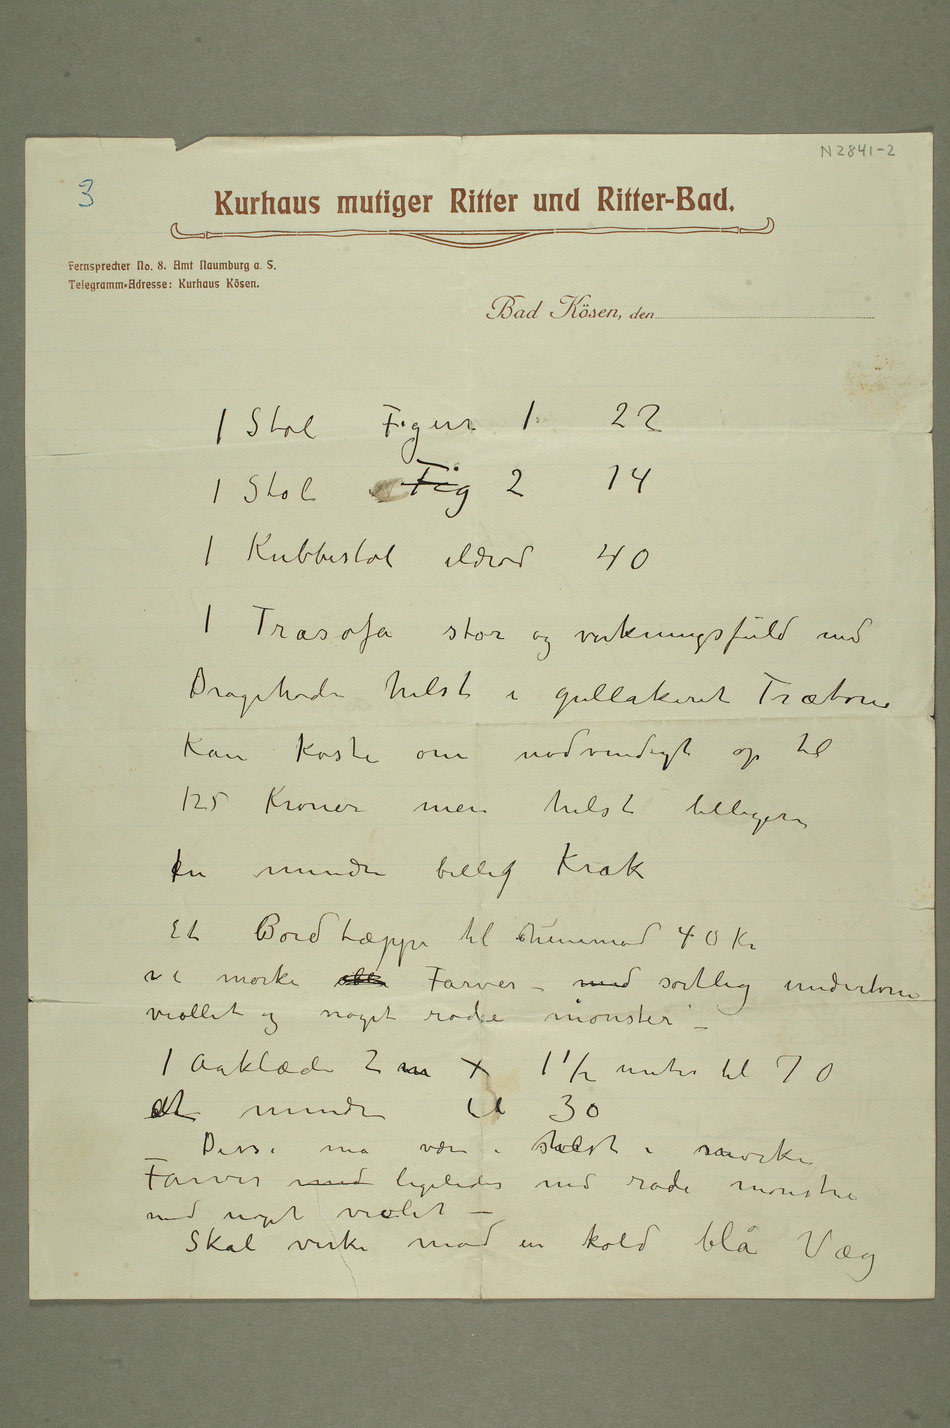 N 2841-2
3
Kurhaus mutiger Ritter und Ritter-Bad.
Fernsprecher No. 8. Amt Naumburg a. S.
Telegramm-Adresse: Kurhaus Kösen.
Bad Kösen, den
1 Stol Figur 1. 22
1 Stol Fig 2 14
1 Kubbestol ildrød 40
1 Træsofa stor og virkningsfuld med
Dragehode helst i gullakeret Trætone
Kan koste om nødvendigt op til
125 Kroner men helst billigere
En mindre billig Krak
Et Bordtæppe til henimod 40 Kr
i mørke Farver – med sortlig undertone
viollet og noget røde mønster –
1 Aaklæde 2 m x 1 1/2 meter til 70
et mindre til 30
Disse må være i helst i mørke
Farver med ligeledes med røde mønstre
med noget violet –
Skal virke mod en kold blå Væg